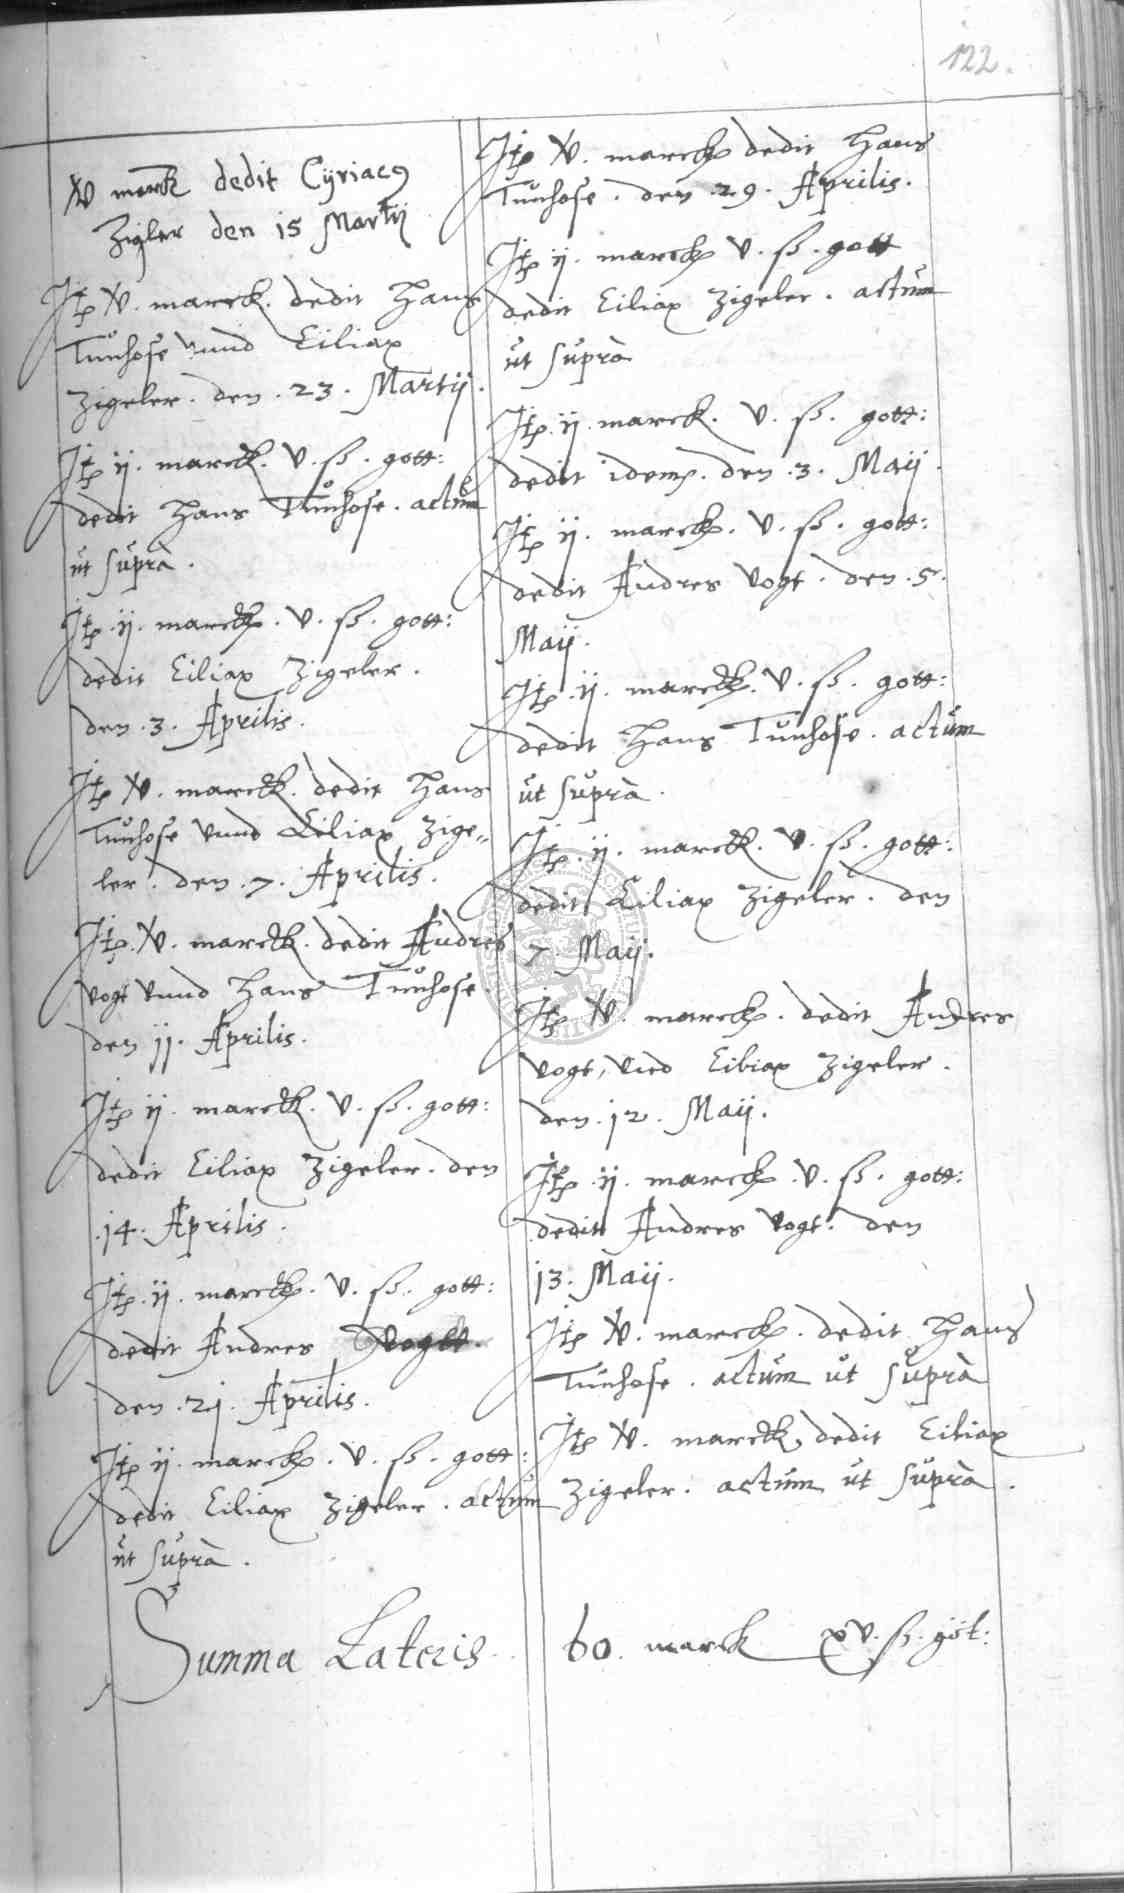 122.
xv marck dedit Cÿriacꝯ
Zigler den 15 Martij
Itp xv. marck. dedit Hans
Tunhose vnnd Ciliax
Zigeler. den. 23. Martij.
Itp ij. marck. v. ß. gott:
dedit Hans Tunhose. actum
ut suprà.
Itp .ij. marck. v. ß. gott:
dedit Ciliax Zigeler.
den .3. Aprilis.
Itp xv. marck. dedit Hans
Tunhose vnnd Ciliax Zige„
ler. den .7. Aprilis.
Itp. xv. marck. dedit Andres
vogt vnnd Hans Tunhose.
den 11. Aprilis.
Itp ij. marck. v. ß. gott:
dedit Ciliax Zigeler. den
.14. Aprilis.
Itp. ij. marck. v. ß. gott:
dedit Andres Vogtt.
den .21. Aprilis.
Itp ij. marck. v. ß. gott:
dedit Ciliax Zigeler. actum
ut suprà.
Itp xv. marck dedit Hans
Tunhose. den 29. Aprilis.
Itp ij. marck v. ß. gott
dedit Ciliax Zigeler. actum
ut suprà
Itp. ij. marck. v. ß. gott:
dedit idem. den .3. Maij.
Itp ij. marck. v. ß. gott:
dedit Andres Vogt. den .5.
Maij.
Itp .ij. marck. v. ß. gott:
dedit Hans Tunhose. actum
ut suprà.
Itp. ij. marck. v. ß. gott:
dedit Ciliax Zigeler. den
7 Maij.
Itp xv. marck. dedit Andres
vogt, vnd Ciliax Zigeler.
den. 12. Maij.
Itp .ij. marck .v. ß. gott:
dedit Andres Vogt. den
13. Maij.
Itp xv. marck. dedit Hans
Tunhose. actum ut suprà
Itp xv. marck, dedit Ciliax
Zigeler. actum ut suprà.
Summa Lateris. 60. marck xv. ß. got: